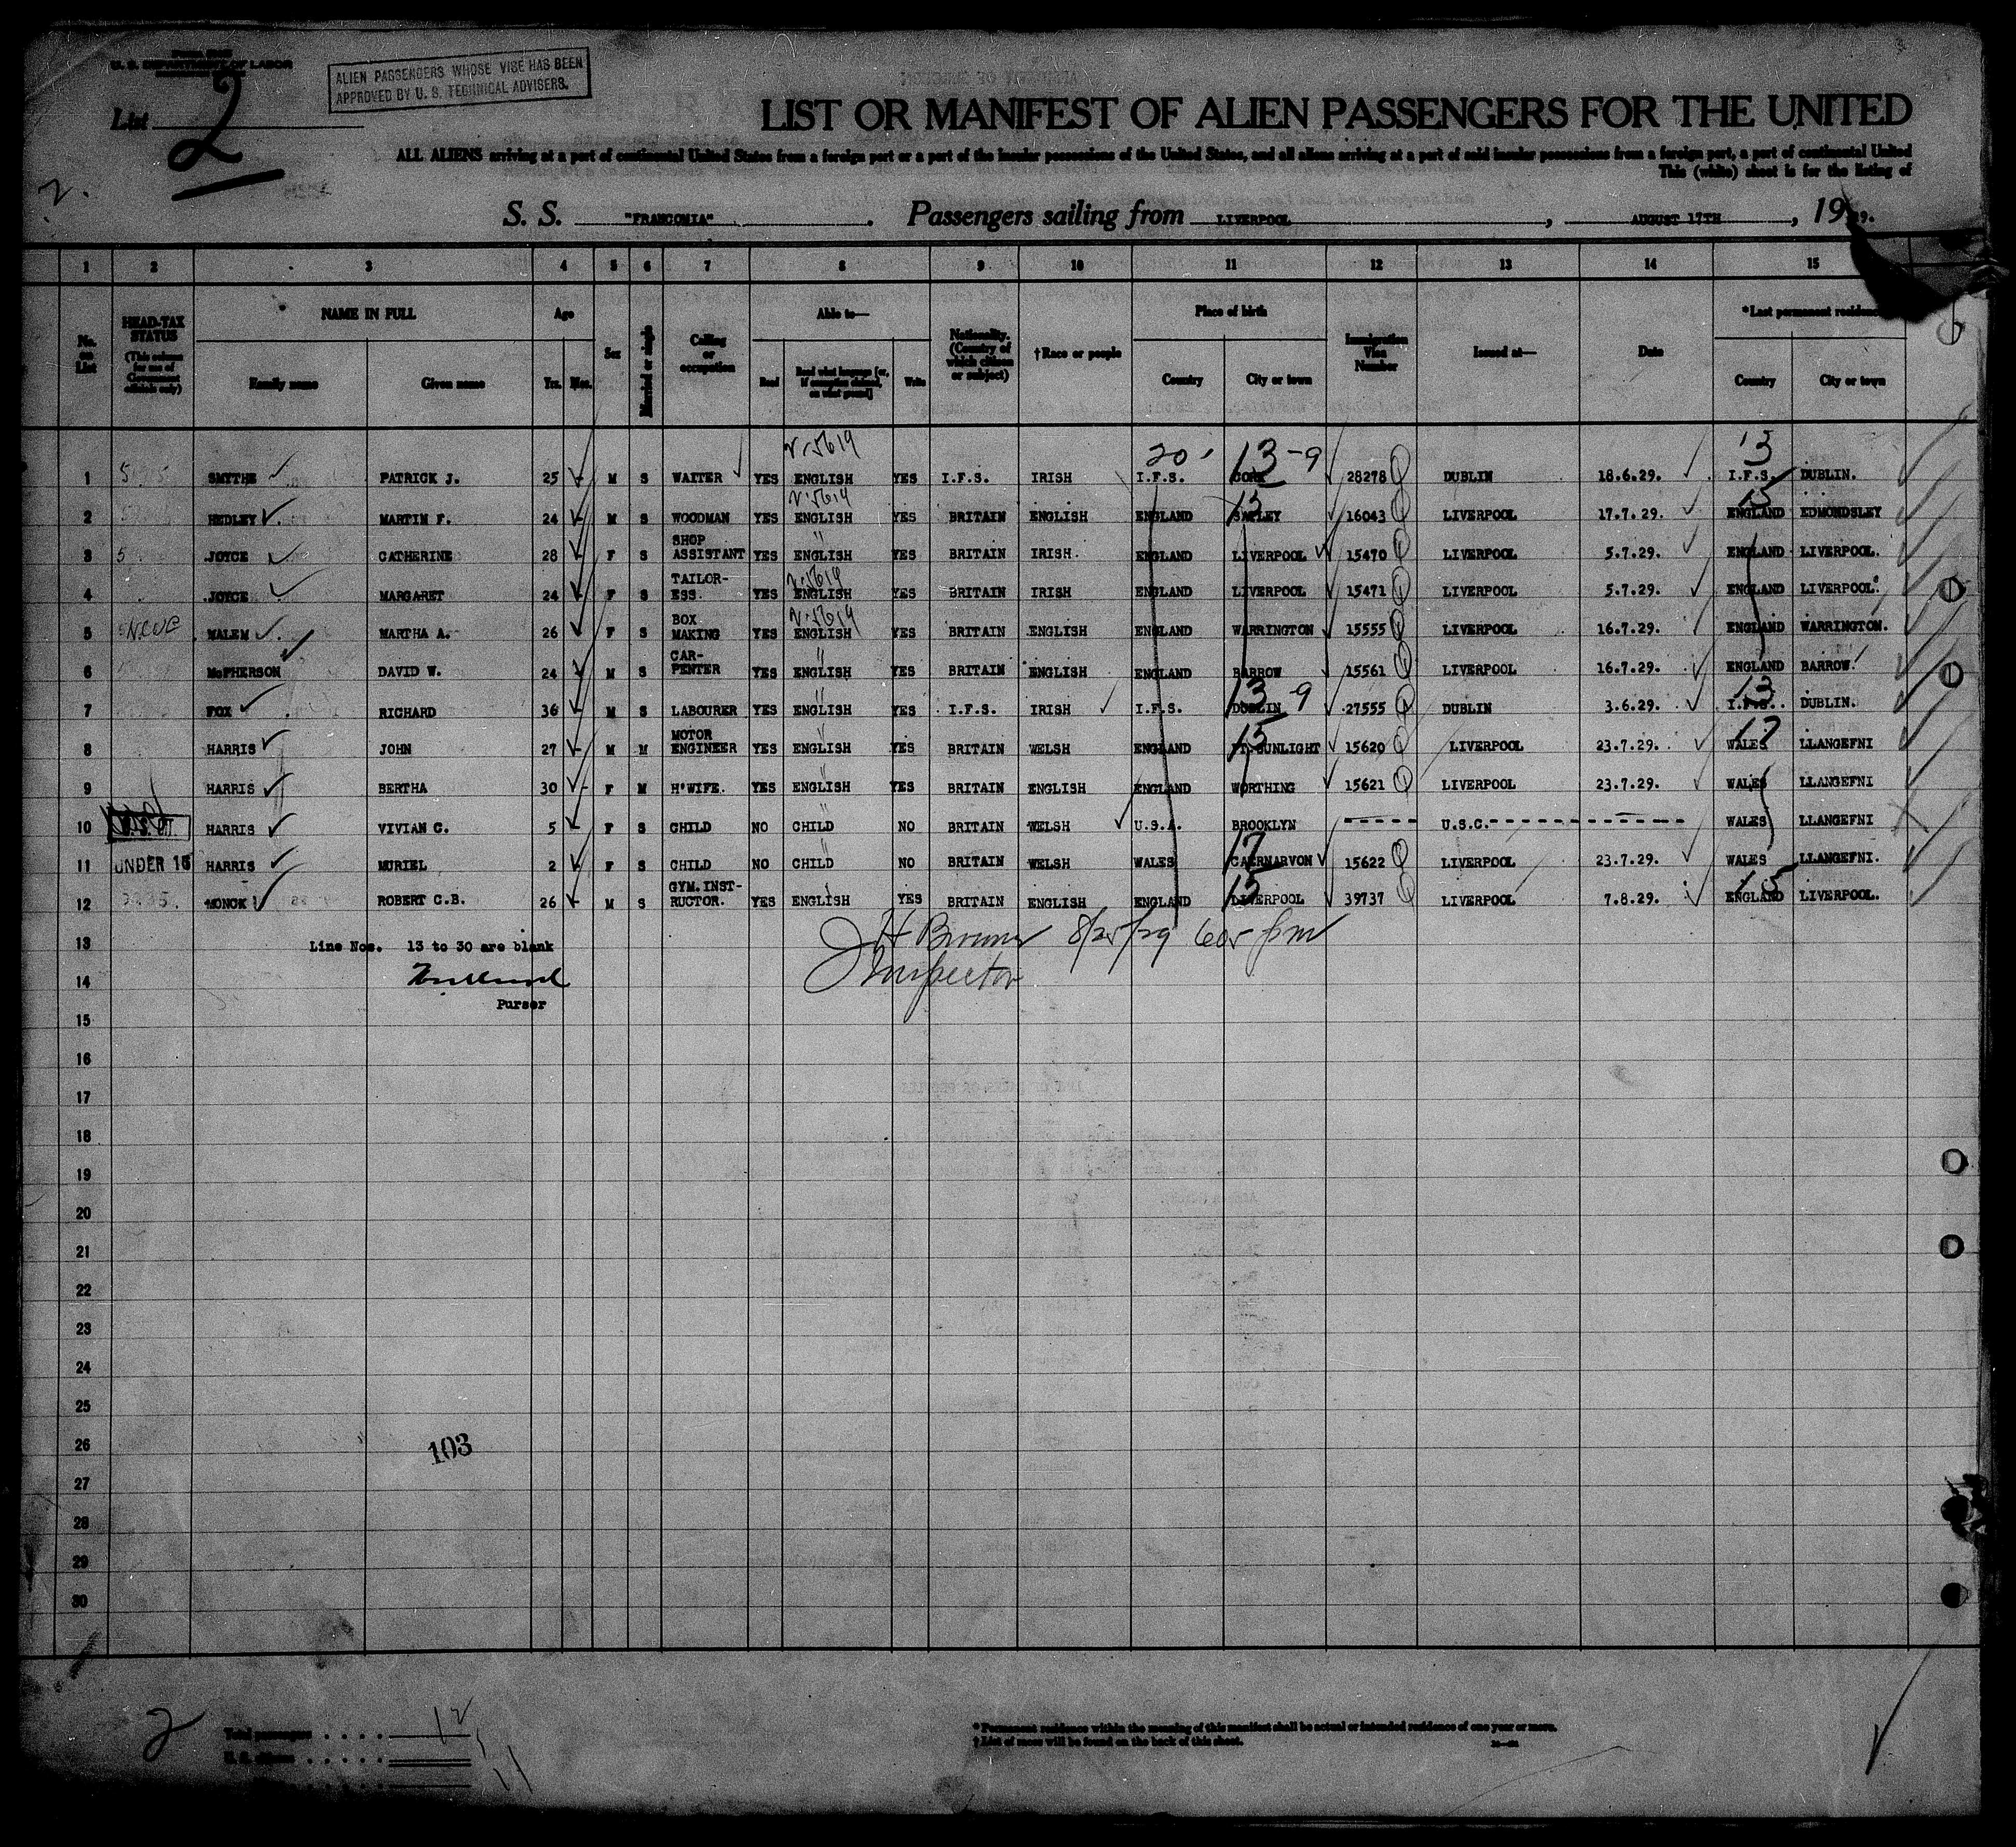 U. S. DEPARTMENT OF LABOR
ALIEN PASSENGERS WHOSE VISE HAS BEEN
APPROVED BY U. S. TECHNICAL ADVISERS.
List 2
2.
LIST OR MANIFEST OF ALIEN PASSENGERS FOR THE UNITED
ALL ALIENS arriving at a port of continental United States from a foreign port or a port of the insular possessions of the United States, and all aliens arriving at a port of said insular possessions from a foreign port, a port of continental United
This (white) sheet is for the listing of
S. S. "FRANCONIA". Passengers sailing from LIVERPOOL, AUGUST 17TH, 1929.
1 2 3 4 5 6 7 8 9 10 11 12 13 14 15
No. on List
HEAD-TAX STATUS (This column for use of Government officials only)
NAME IN FULL Family name Given name
Age Yrs. Mos.
Sex
Married or single
Calling or occupation
Able to— Read Read what language [or, if exemption claimed, on what ground] Write
Nationality. (Country of which citizen or subject)
†Race or people
Place of birth Country City or town
Immigration Visa Number
Issued at—
Date
*Last permanent residence Country City or town
20 13-9 13
1 SMYTHE PATRICK J. 25 M S WAITER YES ENGLISH YES I.F.S. IRISH I.F.S. CORK 28278 DUBLIN 18.6.29. I.F.S. DUBLIN.
2 HEDLEY MARTIN F. 24 M S WOODMAN YES ENGLISH YES BRITAIN ENGLISH ENGLAND 15 16043 LIVERPOOL 17.7.29. 15 ENGLAND EDMONDSLEY
3 5 JOYCE CATHERINE 28 F S SHOP ASSISTANT YES ENGLISH YES BRITAIN IRISH. ENGLAND LIVERPOOL 15470 LIVERPOOL 5.7.29. ENGLAND LIVERPOOL.
4 JOYCE MARGARET 24 F S TAILOR-ESS. YES ENGLISH YES BRITAIN IRISH ENGLAND LIVERPOOL 15471 LIVERPOOL 5.7.29. ENGLAND LIVERPOOL.
5 MALEM MARTHA A. 26 F S BOX MAKING YES ENGLISH YES BRITAIN ENGLISH ENGLAND WARRINGTON 15555 LIVERPOOL 16.7.29. ENGLAND WARRINGTON.
6 McPHERSON DAVID W. 24 M S CAR-PENTER YES ENGLISH YES BRITAIN ENGLISH ENGLAND BARROW 15561 LIVERPOOL 16.7.29. ENGLAND BARROW.
7 FOX RICHARD 36 M S LABOURER YES ENGLISH YES I.F.S. IRISH I.F.S. 13-9 DUBLIN 27555 DUBLIN 3.6.29. 13 I.F.S. DUBLIN.
8 HARRIS JOHN 27 M M MOTOR ENGINEER YES ENGLISH YES BRITAIN WELSH ENGLAND 15 PT.SUNLIGHT 15620 LIVERPOOL 23.7.29. 17 WALES LLANGEFNI
9 HARRIS BERTHA 30 F M H'WIFE. YES ENGLISH YES BRITAIN ENGLISH ENGLAND WORTHING 15621 LIVERPOOL 23.7.29. WALES LLANGEFNI
10 HARRIS VIVIAN C. 5 F S CHILD NO CHILD NO BRITAIN WELSH U.S.A. BROOKLYN ------ U.S.C.-------------- WALES LLANGEFNI
11 UNDER 16 HARRIS MURIEL 2 F S CHILD NO CHILD NO BRITAIN WELSH WALES 17 CAERNARVON 15622 LIVERPOOL 23.7.29. WALES LLANGEFNI.
12 MONCK ROBERT C.B. 26 M S GYM.INST-RUCTOR. YES ENGLISH YES BRITAIN ENGLISH ENGLAND 15 LIVERPOOL 39737 LIVERPOOL 7.8.29. 15 ENGLAND LIVERPOOL.
13 Line Nos. 13 to 30 are blank 8/25/29 605 pm
14 Inspector
Purser
15
16
17
18
19
20
21
22
23
24
25
26 103
27
28
29
30
2
Total passengers . . . . 12
U. S. citizens . . . . . 1
11
*Permanent residence within the meaning of this manifest shall be actual or intended residence of one year or more.
†List of races will be found on the back of this sheet.